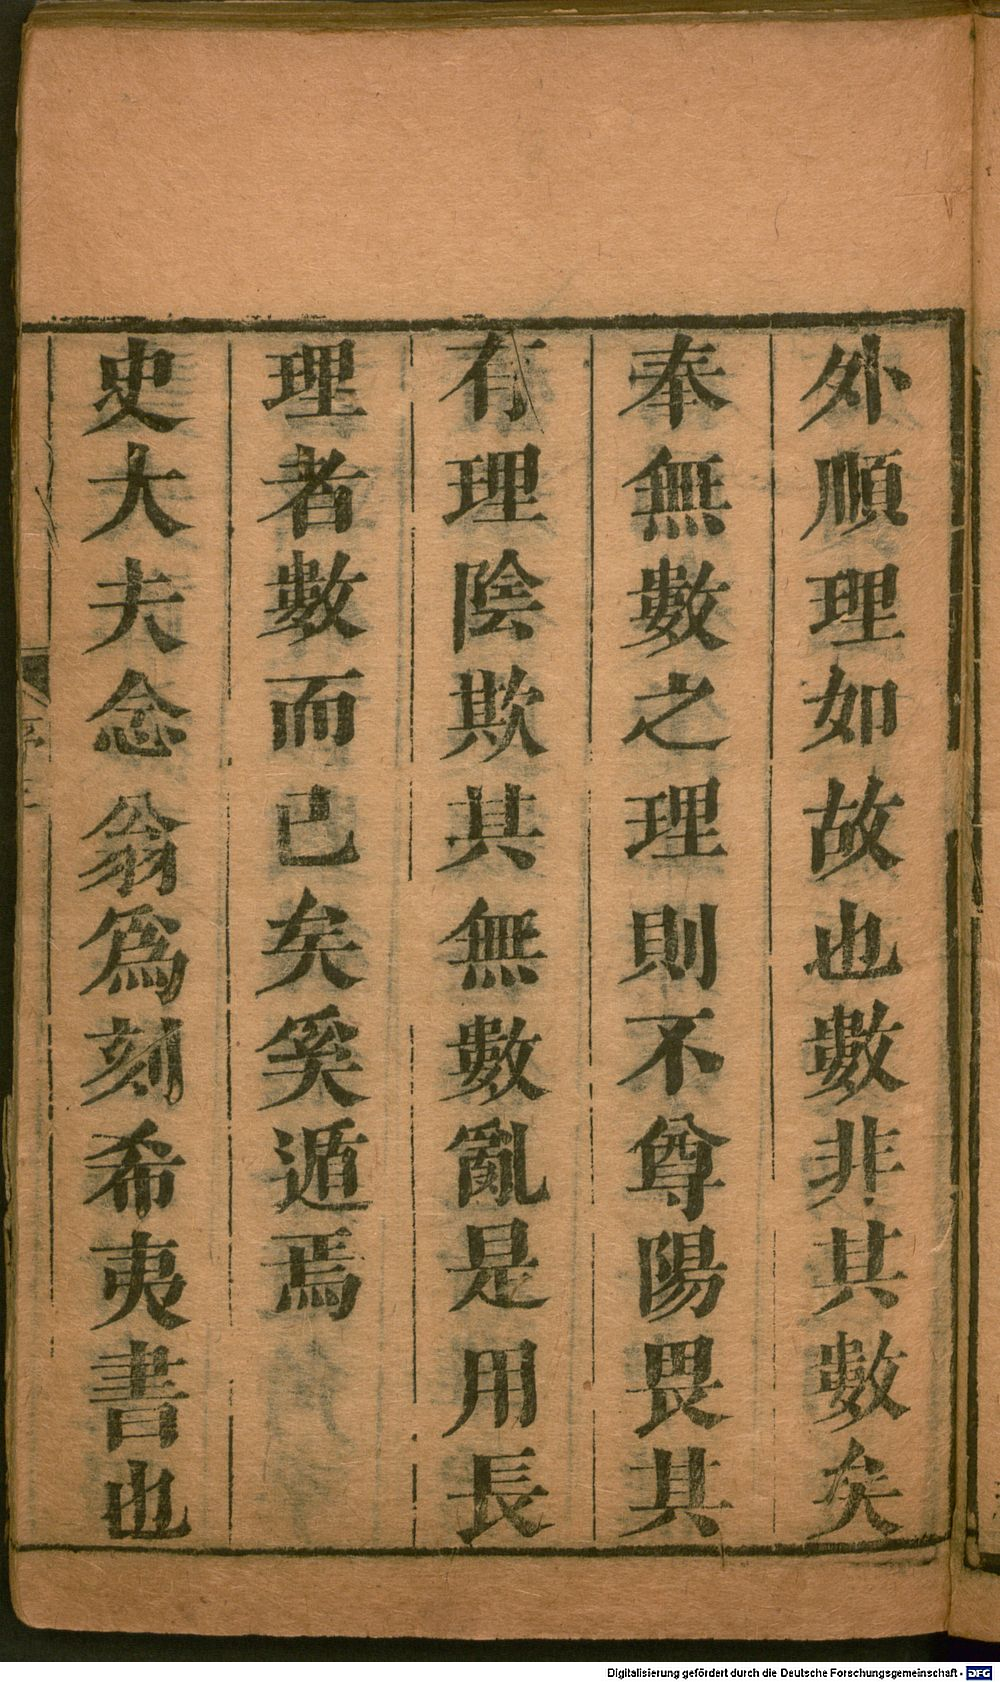 外順理如故也數非其數矣
奉無數之理則不尊陽畏其
有理陰欺其無數亂是用長
理者數而已矣奚遁焉
史大夫念翁爲刻希夷書也
序
Digitalisierung gefördert durch die Deutsche Forschungsgemeinschaft - DFG